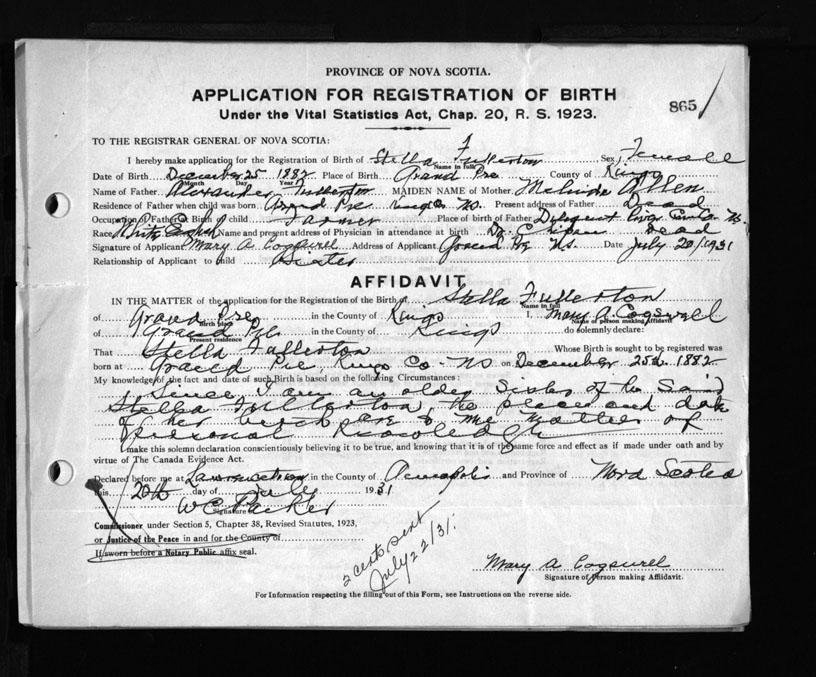 PROVINCE OF NOVA SCOTIA.
APPLICATION FOR REGISTRATION OF BIRTH
865
Under the Vital Statistics Act, Chap. 20, R. S. 1923.
TO THE REGISTRAR GENERAL OF NOVA SCOTIA:
I hereby make application for the Registration of Birth of Stella F Fullerton Sex, Female
Name in full
Date of Birth December 25 1882 Place of Birth Grand Pre County of Kings
Month Day Year
Name of Father Alexander Fullerton MAIDEN NAME of Mother Allen
Residence of Father when child was born Grand Pre Kings NS. Present address of Father Dead
Occupation of Father at Birth of child Farmer Place of birth of Father Kings NS.
Race White Name and present address of Physician in attendance at birth Dr. Dead
Signature of Applicant Mary A Cogswell Address of Applicant Grand Pre NS. Date July 20/1931
Relationship of Applicant to child Sister
AFFIDAVIT
IN THE MATTER of the application for the Registration of the Birth of Stella Fullerton
Name in full
of Grand Pre in the County of Kings I, Mary A. Cogswell
Birth place Name of person making Affidavit
of Grand Pre in the County of Kings do solemnly declare:
Present residence
That Stella Fullerton Whose Birth is sought to be registered was
born at Grand Pre, Kings Co- NS on December 25th 1882
My knowledge of the fact and date of such Birth is based on the following Circumstances:
Since I am an older Sister of the Said
Stella Fullerton, the place and date
of her birth are to me matter of
Personal Knowledge
I make this solemn declaration conscientiously believing it to be true, and knowing that it is of the same force and effect as if made under oath and by
virtue of The Canada Evidence Act.
Declared before me at Lawrencetown in the County of Annapolis and Province of Nova Scotia
this 20th day of July 1931
W C Parker
Signature
Commissioner under Section 5, Chapter 38, Revised Statutes, 1923,
or Justice of the Peace in and for the County of
If sworn before a Notary Public affix seal.
2 certs sent
July 22/31.
Mary A Cogswell
Signature of Person making Affidavit.
For Information respecting the filling out of this Form, see Instructions on the reverse side.